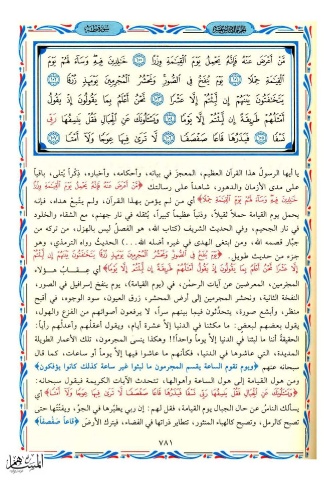 مَّنْ أَعْرَضَ عَنْهُ فَإِنَّهُ يَحْمِلُ يَوْمَ الْقِيَامَةِ وِزْرًا ١٠٠ خَالِدِينَ فِيهِ وَسَاءَ لَهُمْ يَوْمَ
الْقِيَامَةِ حِمْلًا ١٠١ يَوْمَ يُنفَخُ فِي الصُّورِ وَنَحْشُرُ الْمُجْرِمِينَ يَوْمَئِذٍ زُرْقًا ١٠٢
يَتَخَافَتُونَ بَيْنَهُمْ إِن لَّبِثْتُمْ إِلَّا عَشْرًا ١٠٣ نَّحْنُ أَعْلَمُ بِمَا يَقُولُونَ إِذْ يَقُولُ
أَمْثَلُهُمْ طَرِيقَةً إِن لَّبِثْتُمْ إِلَّا يَوْمًا ١٠٤ وَيَسْأَلُونَكَ عَنِ الْجِبَالِ فَقُلْ يَنسِفُهَا رَبِّي
نَسْفًا ١٠٥ فَيَذَرُهَا قَاعًا صَفْصَفًا ١٠٦ لَّا تَرَىٰ فِيهَا عِوَجًا وَلَا أَمْتًا ١٠٧
يا أيها الرسولُ هذا القرآن العظيم، المعجزَ في بيانه، وأحكامه، وأخباره، ذكراً يُتلى، باقياً
على مدى الأزمان والدهور، شاهداً على رسالتك ﴿مَّنْ أَعْرَضَ عَنْهُ فَإِنَّهُ يَحْمِلُ يَوْمَ الْقِيَامَةِ وِزْرًا
خَالِدِينَ فِيهِ وَسَاءَ لَهُمْ يَوْمَ الْقِيَامَةِ حِمْلًا﴾ أي من لم يؤمن بهذا القرآن، ولم يتَّبع هداه، فإنه
يحمل يوم القيامة حملاً ثقيلاً، وذنباً عظيماً كبيراً، يُثقله في نار جهنم، مع الشقاء والخلود
في نار الجحيم، وفي الحديث الشريف (كتاب الله، هو الفصلُ ليس بالهزل، من تركه من
جبَّار قصمه الله، ومن ابتغى الهدى في غيره أضله الله ...) الحديث رواه الترمذي، وهو
جزء من حديث طويل. ﴿يَوْمَ يُنفَخُ فِي الصُّورِ وَنَحْشُرُ الْمُجْرِمِينَ يَوْمَئِذٍ زُرْقًا يَتَخَافَتُونَ بَيْنَهُمْ إِن لَّبِثْتُمْ
إِلَّا عَشْرًا نَّحْنُ أَعْلَمُ بِمَا يَقُولُونَ إِذْ يَقُولُ أَمْثَلُهُمْ طَرِيقَةً إِن لَّبِثْتُمْ إِلَّا يَوْمًا﴾ أي هؤلاء
المجرمين، المعرضين عن آيات الرحمن، في (يوم القيامة)، يوم ينفخ إسرافيل في الصور،
النفخة الثانية، ونحشر المجرمين إلى أرض المحشر، زرق العيون، سود الوجوه، في أقبح
منظر، وأبشع صورة، يتحدَّثون فيما بينهم سراً، لا يرفعون أصواتهم من الفزع والهول،
يقول بعضهم لبعض: ما مكثنا في الدنيا إلاَّ عشرة أيام، ويقول أعقلُهم وأعدلُهم رأياً:
الحقيقةُ أننا ما لبثنا في الدنيا إلاَّ يوماً واحداً!! وهكذا ينسى المجرمون، تلك الأعمار الطويلة
المديدة، التي عاشوها في الدنيا، فكأنهم ما عاشوا فيها إلاَّ يوماً أو ساعات، كما قال
سبحانه عنهم ﴿ويوم تقوم الساعة يقسم المجرمون ما لبثوا غير ساعة كذلك كانوا يؤفكون﴾
ومن هول القيامة إلى هول الساعة وأهوالها، تتحدث الآيات الكريمة فيقول سبحانه:
﴿وَيَسْأَلُونَكَ عَنِ الْجِبَالِ فَقُلْ يَنسِفُهَا رَبِّي نَسْفًا فَيَذَرُهَا قَاعًا صَفْصَفًا لَّا تَرَىٰ فِيهَا عِوَجًا وَلَا أَمْتًا﴾ أي
يسألك الناسُ عن حال الجبال يوم القيامة، فقل لهم: إن ربي يطيِّرها في الجوِّ، ويفتِّتُها حتى
تصبح كالرمل، وتصبح كالهباء المنثور، تتطاير ذراتها في الفضاء، فيترك الأرضَ ﴿قاعاً صفصفاً﴾
٧٨١